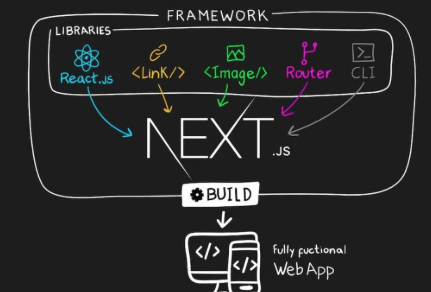 FRAMEWORK
LIBRARIES
React.JS <LinK/> <Image/> Router CLI
NEXT.JS
BUILD
</> </>
fully fuctional
Web App